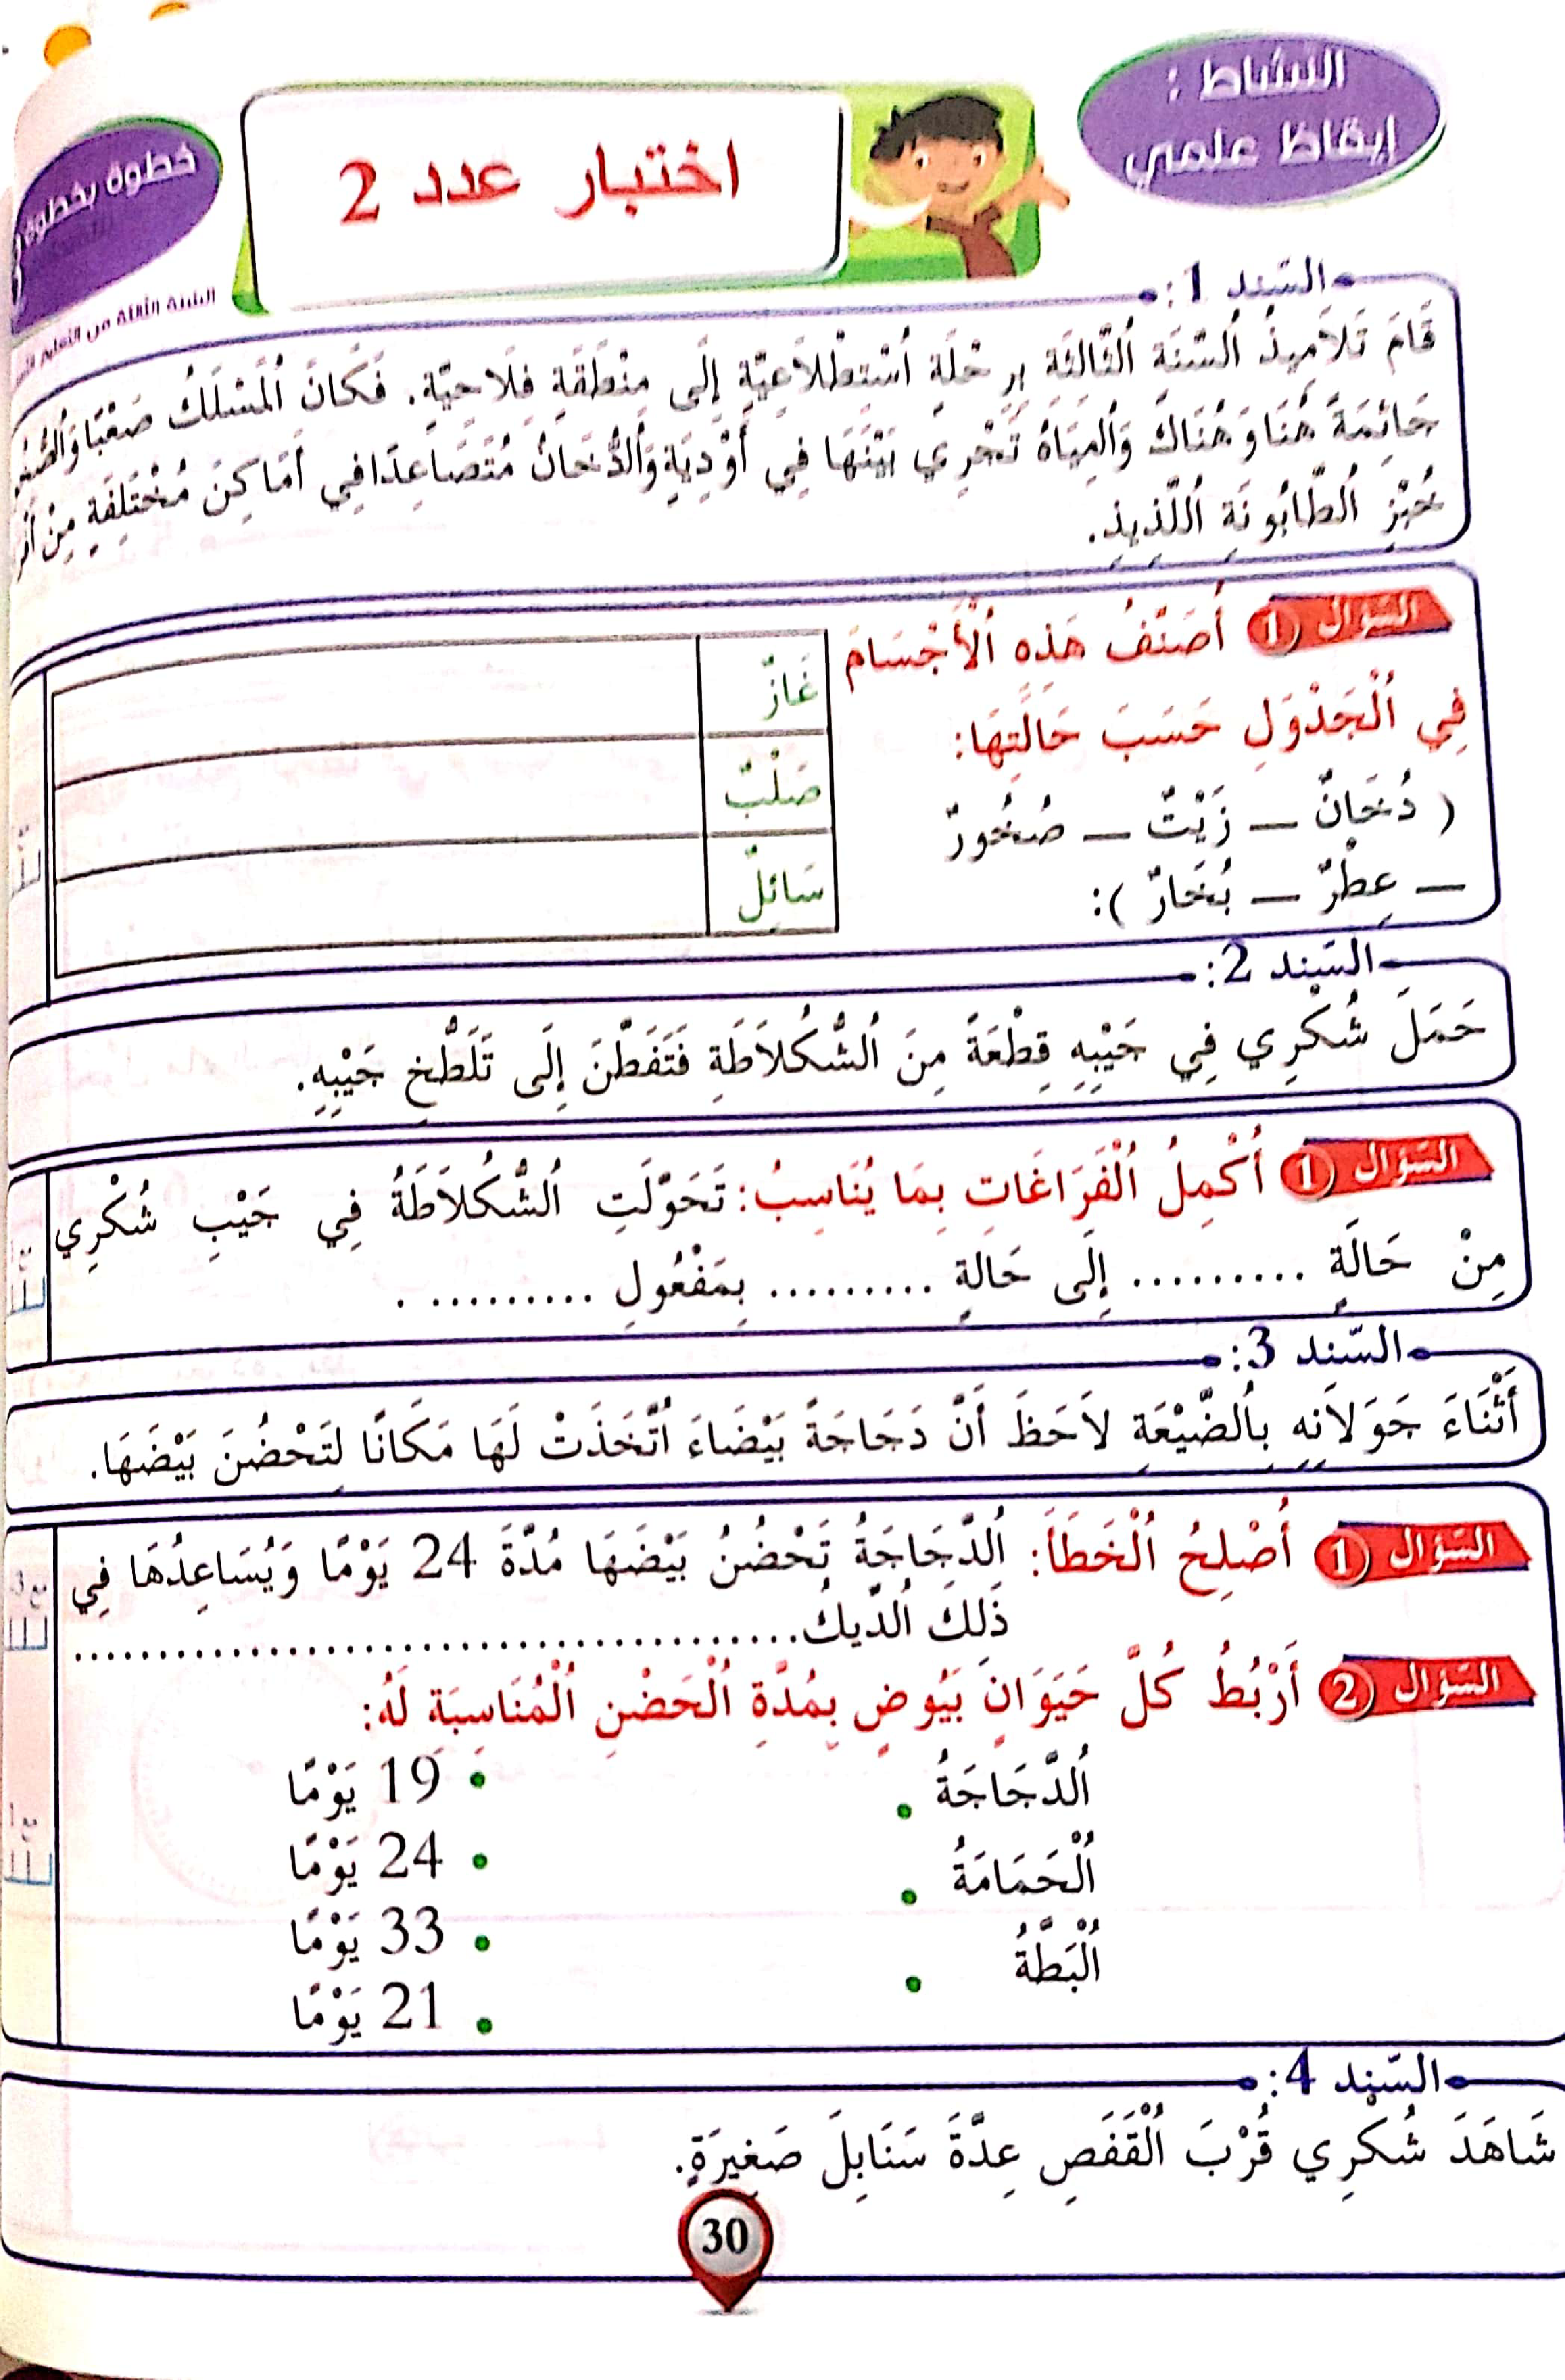 النشاط :
إيقاظ علمي
اختبار عدد 2
خطوة بخطوة
السنة الثالثة من التعليم
السّند 1:
قَامَ تَلَامِيذُ ٱلسَّنَةِ ٱلثَّالِثَةِ بِرِحْلَةٍ ٱسْتِطْلَاعِيَّةٍ إِلَى مِنْطَقَةٍ فِلَاحِيَّةٍ. فَكَانَ ٱلْمَسْلَكُ صَعْبًا
جَاثِمَةً هُنَا وَهُنَاكَ وَٱلْمِيَاهُ تَجْرِي بَيْنَهَا فِي أَوْدِيَةٍ وَٱلدُّخَانُ مُتَصَاعِدًا فِي أَمَاكِنَ مُخْتَلِفَةٍ مِنْ
خُبْزِ ٱلطَّابُونَةِ ٱللَّذِيذِ.
السّؤال 1 أُصَنِّفُ هَذِهِ ٱلْأَجْسَامَ
فِي ٱلْجَدْوَلِ حَسَبَ حَالَتِهَا:
( دُخَانٌ – زَيْتٌ – صُخُورٌ
– عِطْرٌ – بُخَارٌ ):
غَازٌ
صَلْبٌ
سَائِلٌ
السّند 2:
حَمَلَ شُكْرِي فِي جَيْبِهِ قِطْعَةً مِنَ ٱلشُّكُلَاطَةِ فَتَفَطَّنَ إِلَى تَلَطُّخِ جَيْبِهِ.
السّؤال 1 أُكْمِلُ ٱلْفَرَاغَاتِ بِمَا يُنَاسِبُ: تَحَوَّلَتِ ٱلشُّكُلَاطَةُ فِي جَيْبِ شُكْرِي
مِنْ حَالَةِ ......... إِلَى حَالَةِ ......... بِمَفْعُولِ ......... .
السّند 3:
أَثْنَاءَ جَوَلَانِهِ بِٱلضَّيْعَةِ لَاحَظَ أَنَّ دَجَاجَةً بَيْضَاءَ ٱتَّخَذَتْ لَهَا مَكَانًا لِتَحْضُنَ بَيْضَهَا.
السّؤال 1 أُصْلِحُ ٱلْخَطَأَ: ٱلدَّجَاجَةُ تَحْضُنُ بَيْضَهَا مُدَّةَ 24 يَوْمًا وَيُسَاعِدُهَا فِي
ذَلِكَ ٱلدِّيكُ.............................................
السّؤال 2 أَرْبُطُ كُلَّ حَيَوَانٍ بَيُوضٍ بِمُدَّةِ ٱلْحَضْنِ ٱلْمُنَاسِبَةِ لَهُ:
ٱلدَّجَاجَةُ • • 19 يَوْمًا
ٱلْحَمَامَةُ • • 24 يَوْمًا
ٱلْبَطَّةُ • • 33 يَوْمًا
• 21 يَوْمًا
السّند 4:
شَاهَدَ شُكْرِي قُرْبَ ٱلْقَفَصِ عِدَّةَ سَنَابِلَ صَغِيرَةٍ.
30